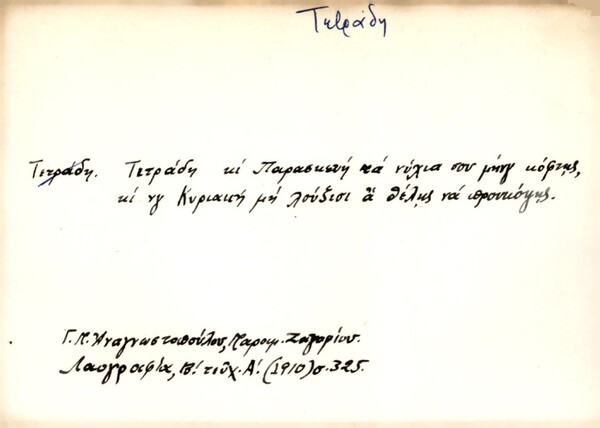 Τετράδη
Τετράδη. Τετράδη κὶ Παρασκευὴ τὰ νύχια σου μὴγ κόφτῃς,
κὶ νγ Κυριακὴ μὴ λούζισι ἂ θέλῃς νὰ προυκόψῃς.
Γ. Π. Ἀναγνωστοπούλου, Παροιμ. Ζαγορίου.
Λαογραφία, Β! τεῦχ. Α! (1910) σ. 325.